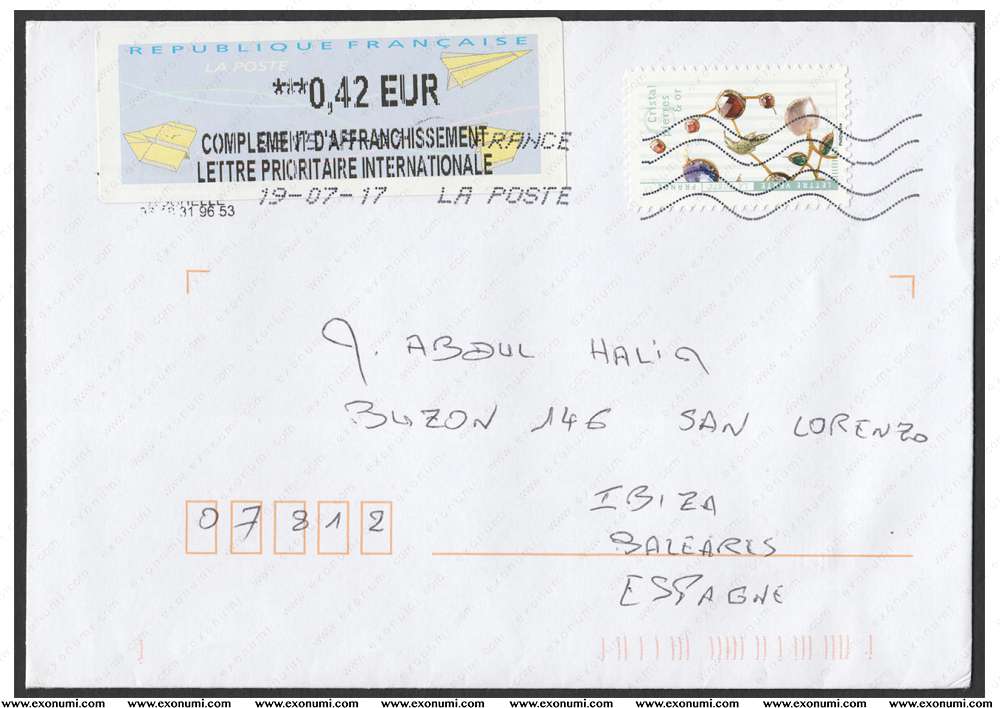 REPUBLIQUE FRANÇAISE
LA POSTE
**0,42 EUR
COMPLEMENT D'AFFRANCHISSEMENT
LETTRE PRIORITAIRE INTERNATIONALE
FRANCE
19-07-17 LA POSTE
31 96 53
Cristal
& or
LETTRE VERTE
J. ABDUL HALIM
BUZON 146 SAN LORENZO
IBIZA
07812
BALEARES
ESPAGNE
www.exonumi.com www.exonumi.com www.exonumi.com www.exonumi.com www.exonumi.com www.exonumi.com www.exonumi.com www.exonumi.com